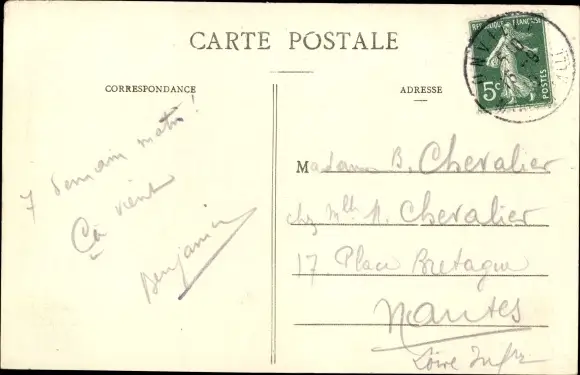 CARTE POSTALE
CORRESPONDANCE
ADRESSE
REPUBLIQUE FRANÇAISE
5c
POSTES
7 demain matin!
Ça vient
Benjamin
Madame B. Chevalier
chez Mlle M. Chevalier
17 Place Bretagne
Nantes
Loire Infre